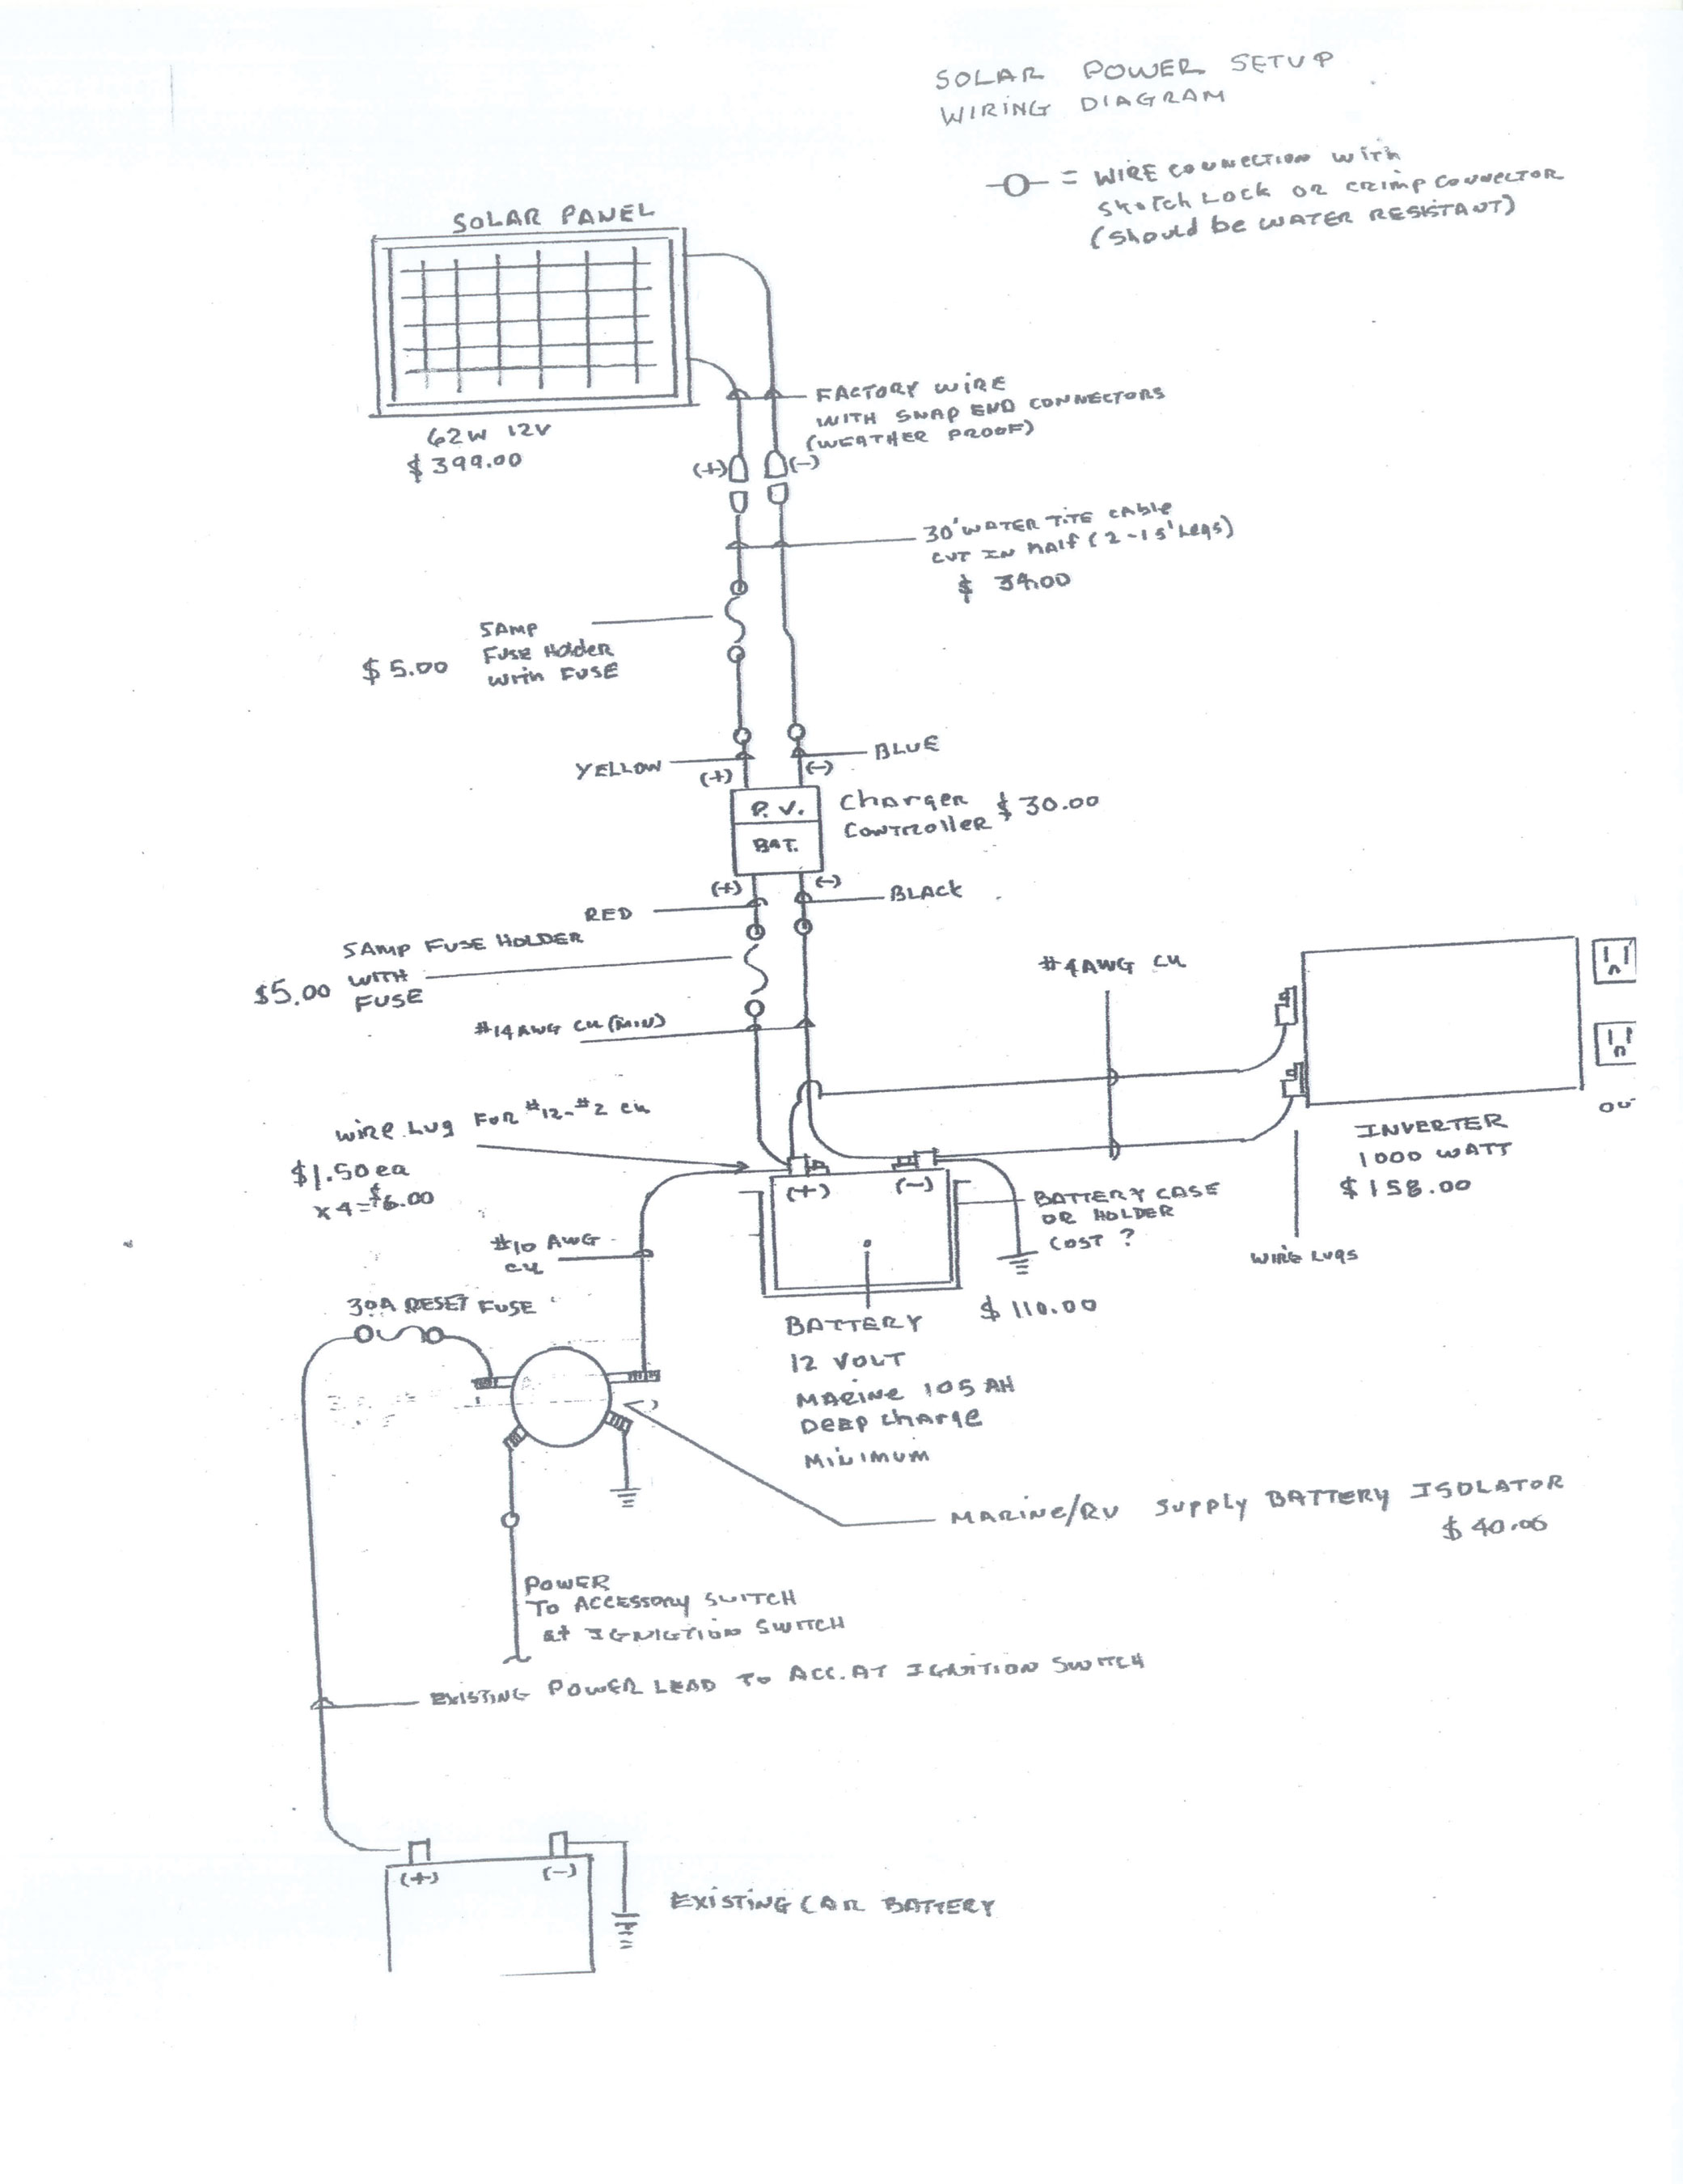 SOLAR POWER SETUP
WIRING DIAGRAM
= WIRE CONNECTION WITH
SKOTCH LOCK OR CRIMP CONNECTOR
(SHOULD BE WATER RESISTANT)
SOLAR PANEL
62W 12V
$399.00
FACTORY WIRE
WITH SNAP END CONNECTORS
(WEATHER PROOF)
(+) (-)
30' WATER TITE CABLE
CUT IN HALF (2-15' LEGS)
$ 34.00
5AMP
FUSE HOLDER
WITH FUSE
$5.00
YELLOW
BLUE
(+) (-)
P.V.
BAT.
CHARGER
CONTROLLER
$30.00
(+) (-)
RED
BLACK
5AMP FUSE HOLDER
WITH
FUSE
$5.00
#14 AWG CU (MIN)
#4 AWG CU
WIRE LUG FOR #12-#2 CU
$1.50 ea
x4=$6.00
(+) (-)
INVERTER
1000 WATT
$158.00
OU
WIRE LUGS
BATTERY CASE
OR HOLDER
COST ?
#10 AWG
CU
30A RESET FUSE
BATTERY
12 VOLT
MARINE 105 AH
DEEP CHARGE
MINIMUM
$110.00
MARINE/RV SUPPLY BATTERY ISOLATOR
POWER
TO ACCESSORY SWITCH
at IGNIGTION SWITCH
EXISTING POWER LEAD TO ACC. AT IGNITION SWITCH
(+) (-)
EXISTING CAR BATTERY